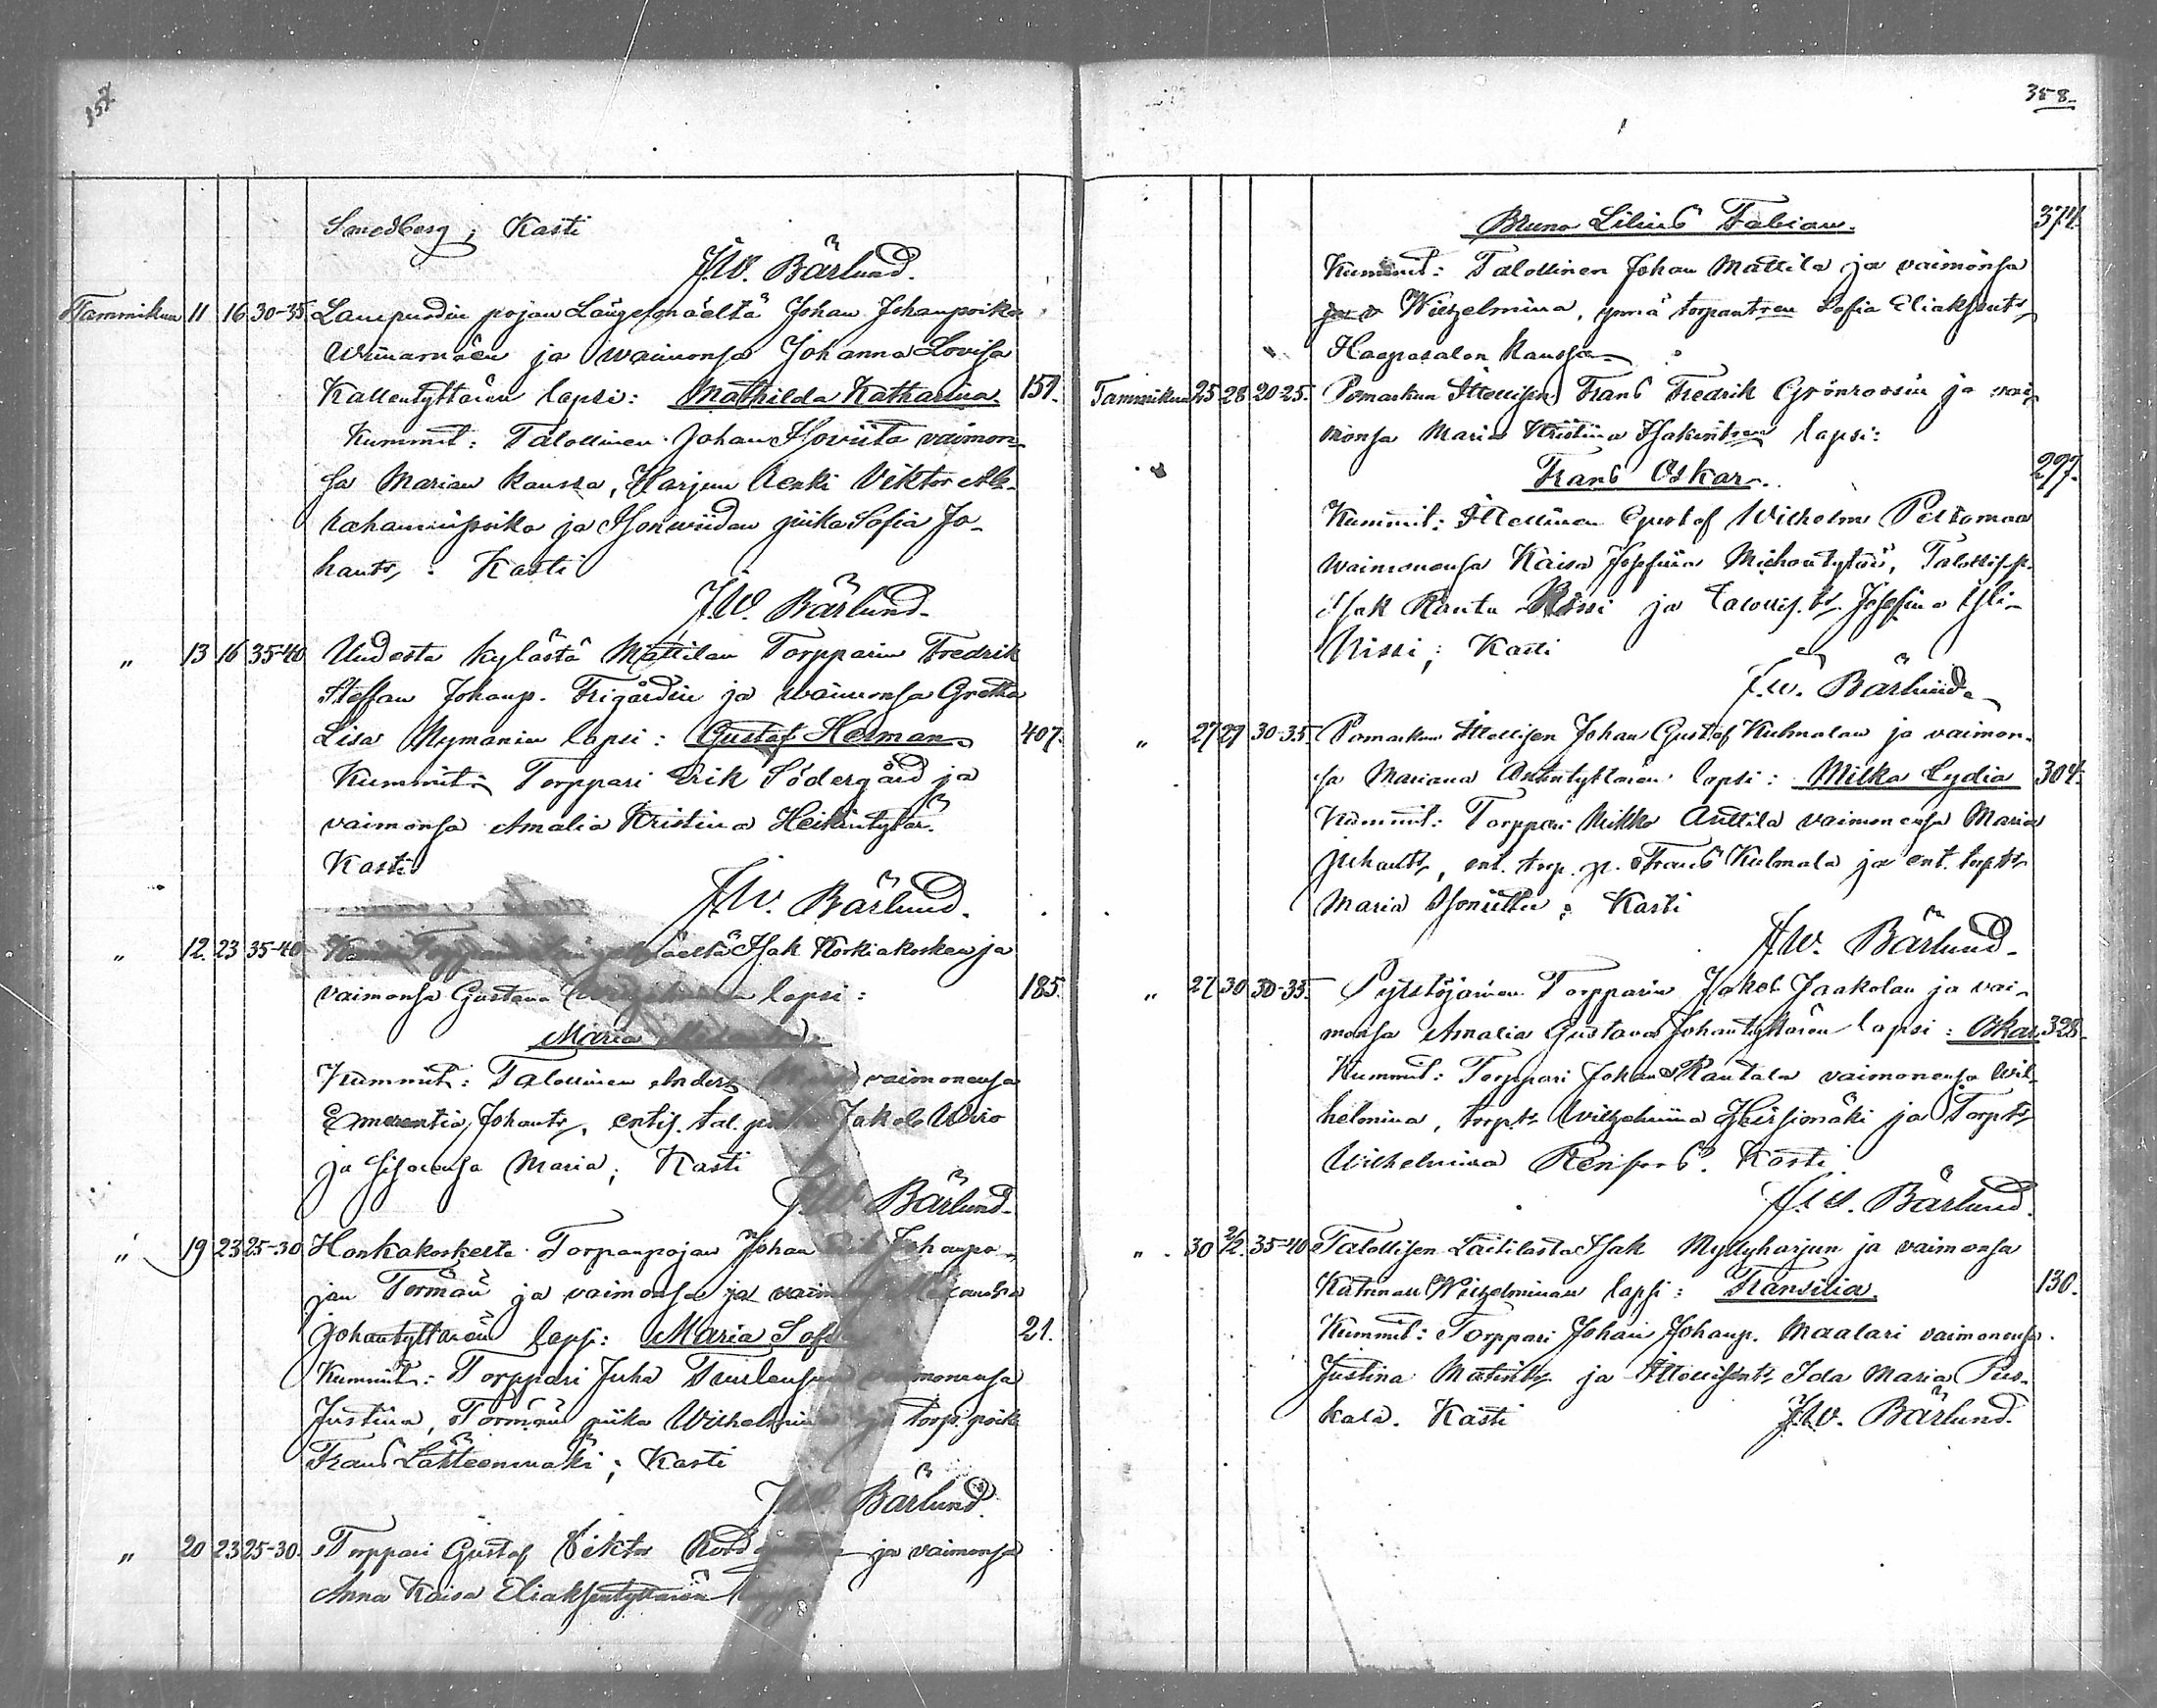 357
Smedberg; Kasti
J.W. Bärlund.
Tammikuu 11 16 30-35 Lampuodin pojan Längelmäeltä Johan Johanpoika
ja waimonsa Johanna Lovisa
Kallentyttären lapsi: Mathilda Katharina 157.
Kummit: Talollinen Johan Isoviita vaimon-
sa Marian kanssa, Harjun Renki Viktor Ab-
rahaminpoika ja Isonwiidan piika Sofia Jo-
hantr, Kasti
J.W. Bärlund.
" 13 16 35-40 Uudesta kylästä Mattilan Torpparin Fredrik
Steffan Johanp. Frigårdin ja waimonsa Gretha
Lisa Nymanin lapsi: Gustaf Herman 407.
Kummit: Torppari Erik Södergård ja
vaimonsa Amalia Kristina Heikintytär.
Kasti
J.W. Bärlund.
" 12. 23 35-40 Isak Korkiakosken ja
vaimonsa Gustava lapsi: 185.
Maria
Kummit: Talollinen Anders vaimonensa
Emerentia Johantr, entis. tal. Jakob Uvio
ja sisarensa Maria; Kasti
J.W. Bärlund.
" 19 23 25-30 Honkakoskelta Torpanpojan Johan Erik Johanpo-
jan Törmän ja vaimonsa ja
Johantyttären lapsi: Maria Sof 21.
Kummit: Torppari Juha vaimonensa
Justina, Törmän piika Wilhelmina ja torp. poik
Frans Lähteenmäki; Kasti
J.W. Bärlund.
" 20 23 25-30. Torppari Gustaf Viktor ja vaimonsa
Anna Kaisa Eliaksentyttären
358
Bruno Lilius Fabian. 374.
Kummit: Talollinen Johan Mattila ja vaimonsa
ja v Wilhelmina, ynnä torpantren Sofia Eliaksentr
Haapasalon kanssa
Tammikuu 25 28 20-25. Pomarkun Itsellisen Frans Fredrik Grönroosin ja vai-
monsa Maria Kristina Isakintren lapsi:
Frans Oskar. 297.
Kummit: Itsellinen Gustaf Wilhelm Peltomaa
waimonensa Kaisa Josefina Mich:ntytär, Talollis.p.
Isak Rantu Nissi ja Talollis. tr. Josefina Yli-
Nissi; Kasti
J.W. Bärlund.
" 27 29 30-35. Pomarkun Itsellisen Johan Gustaf Kulmalan ja vaimon-
sa Mariana Antintyttären lapsi: Milka Lydia 304.
Kummit: Torppari Mikko Anttila vaimonensa Maria
Juhantr, ent. torp. p. Frans Kulmala ja ent. torptr
Maria; Kasti
J.W. Bärlund.
" 27 30 30-35. Torpparin Jakob Jaakolan ja vai-
monsa Amalia Gustava Johantyttären lapsi: Oskar. 328.
Kummit: Torppari Johan Rantala vaimonensa Wil-
helmina, torp.tr Wilhelmiina Hirsimäki ja Torptr
Wilhelmina Renfors. Kasti
J.W. Bärlund.
" 30 2/2. 35-40 Talollisen Laitilasta Isak Myllyharjun ja vaimonsa
Katrinan Wilhelminan lapsi: Fransilia. 130.
Kummit: Torppari Johan Johanp. Maalari vaimonensa
Justina Matintr ja Itsellisentr Ida Maria Pus-
kala. Kasti J.W. Bärlund.